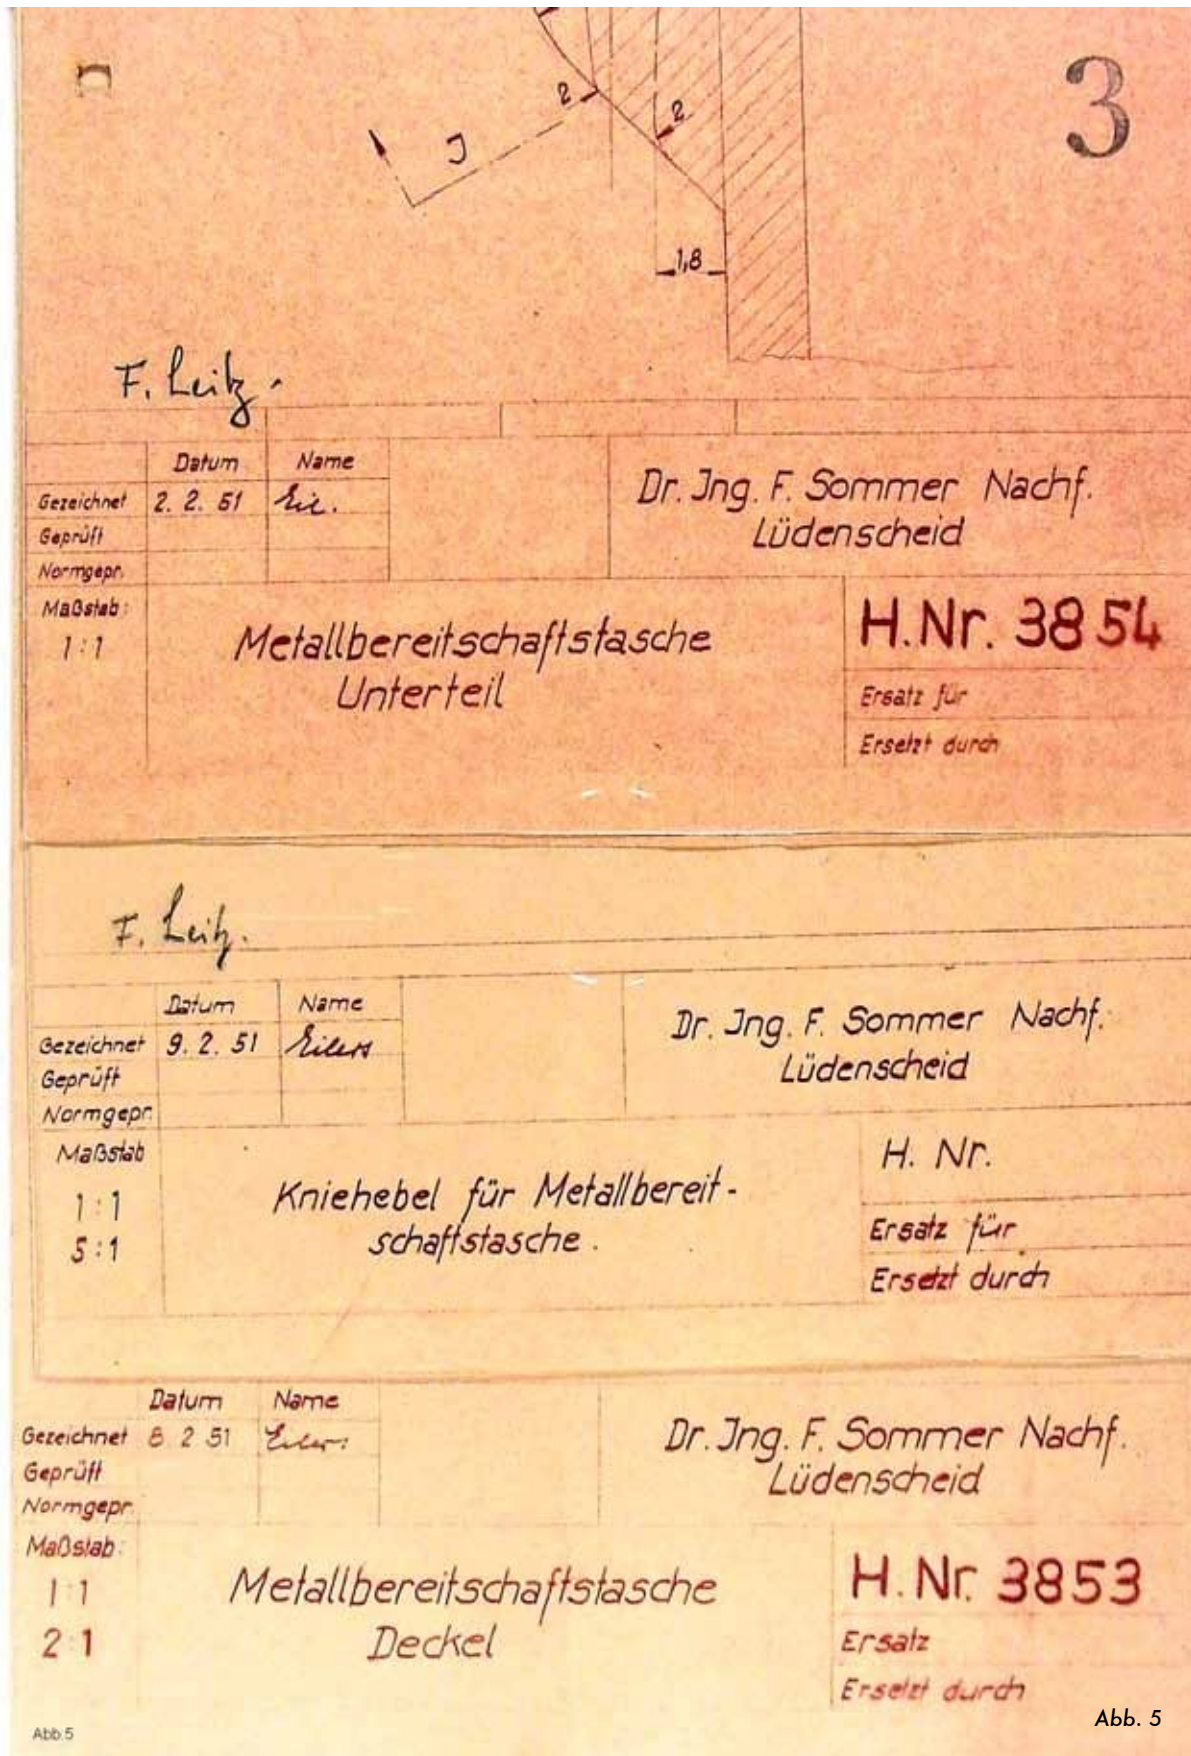 3
2
2
J
1,8
F. Leitz.
Datum Name
Gezeichnet 2. 2. 51 Eil.
Geprüft
Normgepr.
Dr. Jng. F. Sommer Nachf.
Lüdenscheid
Maßstab:
1:1
Metallbereitschaftstasche
Unterteil
H.Nr. 3854
Ersatz für
Ersetzt durch
F. Leitz.
Datum Name
Gezeichnet 9. 2. 51 Eilers
Geprüft
Normgepr.
Dr. Jng. F. Sommer Nachf.
Lüdenscheid
Maßstab
1:1
5:1
Kniehebel für Metallbereit-
schaftstasche.
H. Nr.
Ersatz für
Ersetzt durch
Datum Name
Gezeichnet 8 2 51 Eilers
Geprüft
Normgepr.
Dr. Jng. F. Sommer Nachf.
Lüdenscheid
Maßstab:
1:1
2:1
Metallbereitschaftstasche
Deckel
H.Nr. 3853
Ersatz
Ersetzt durch
Abb.5
Abb. 5